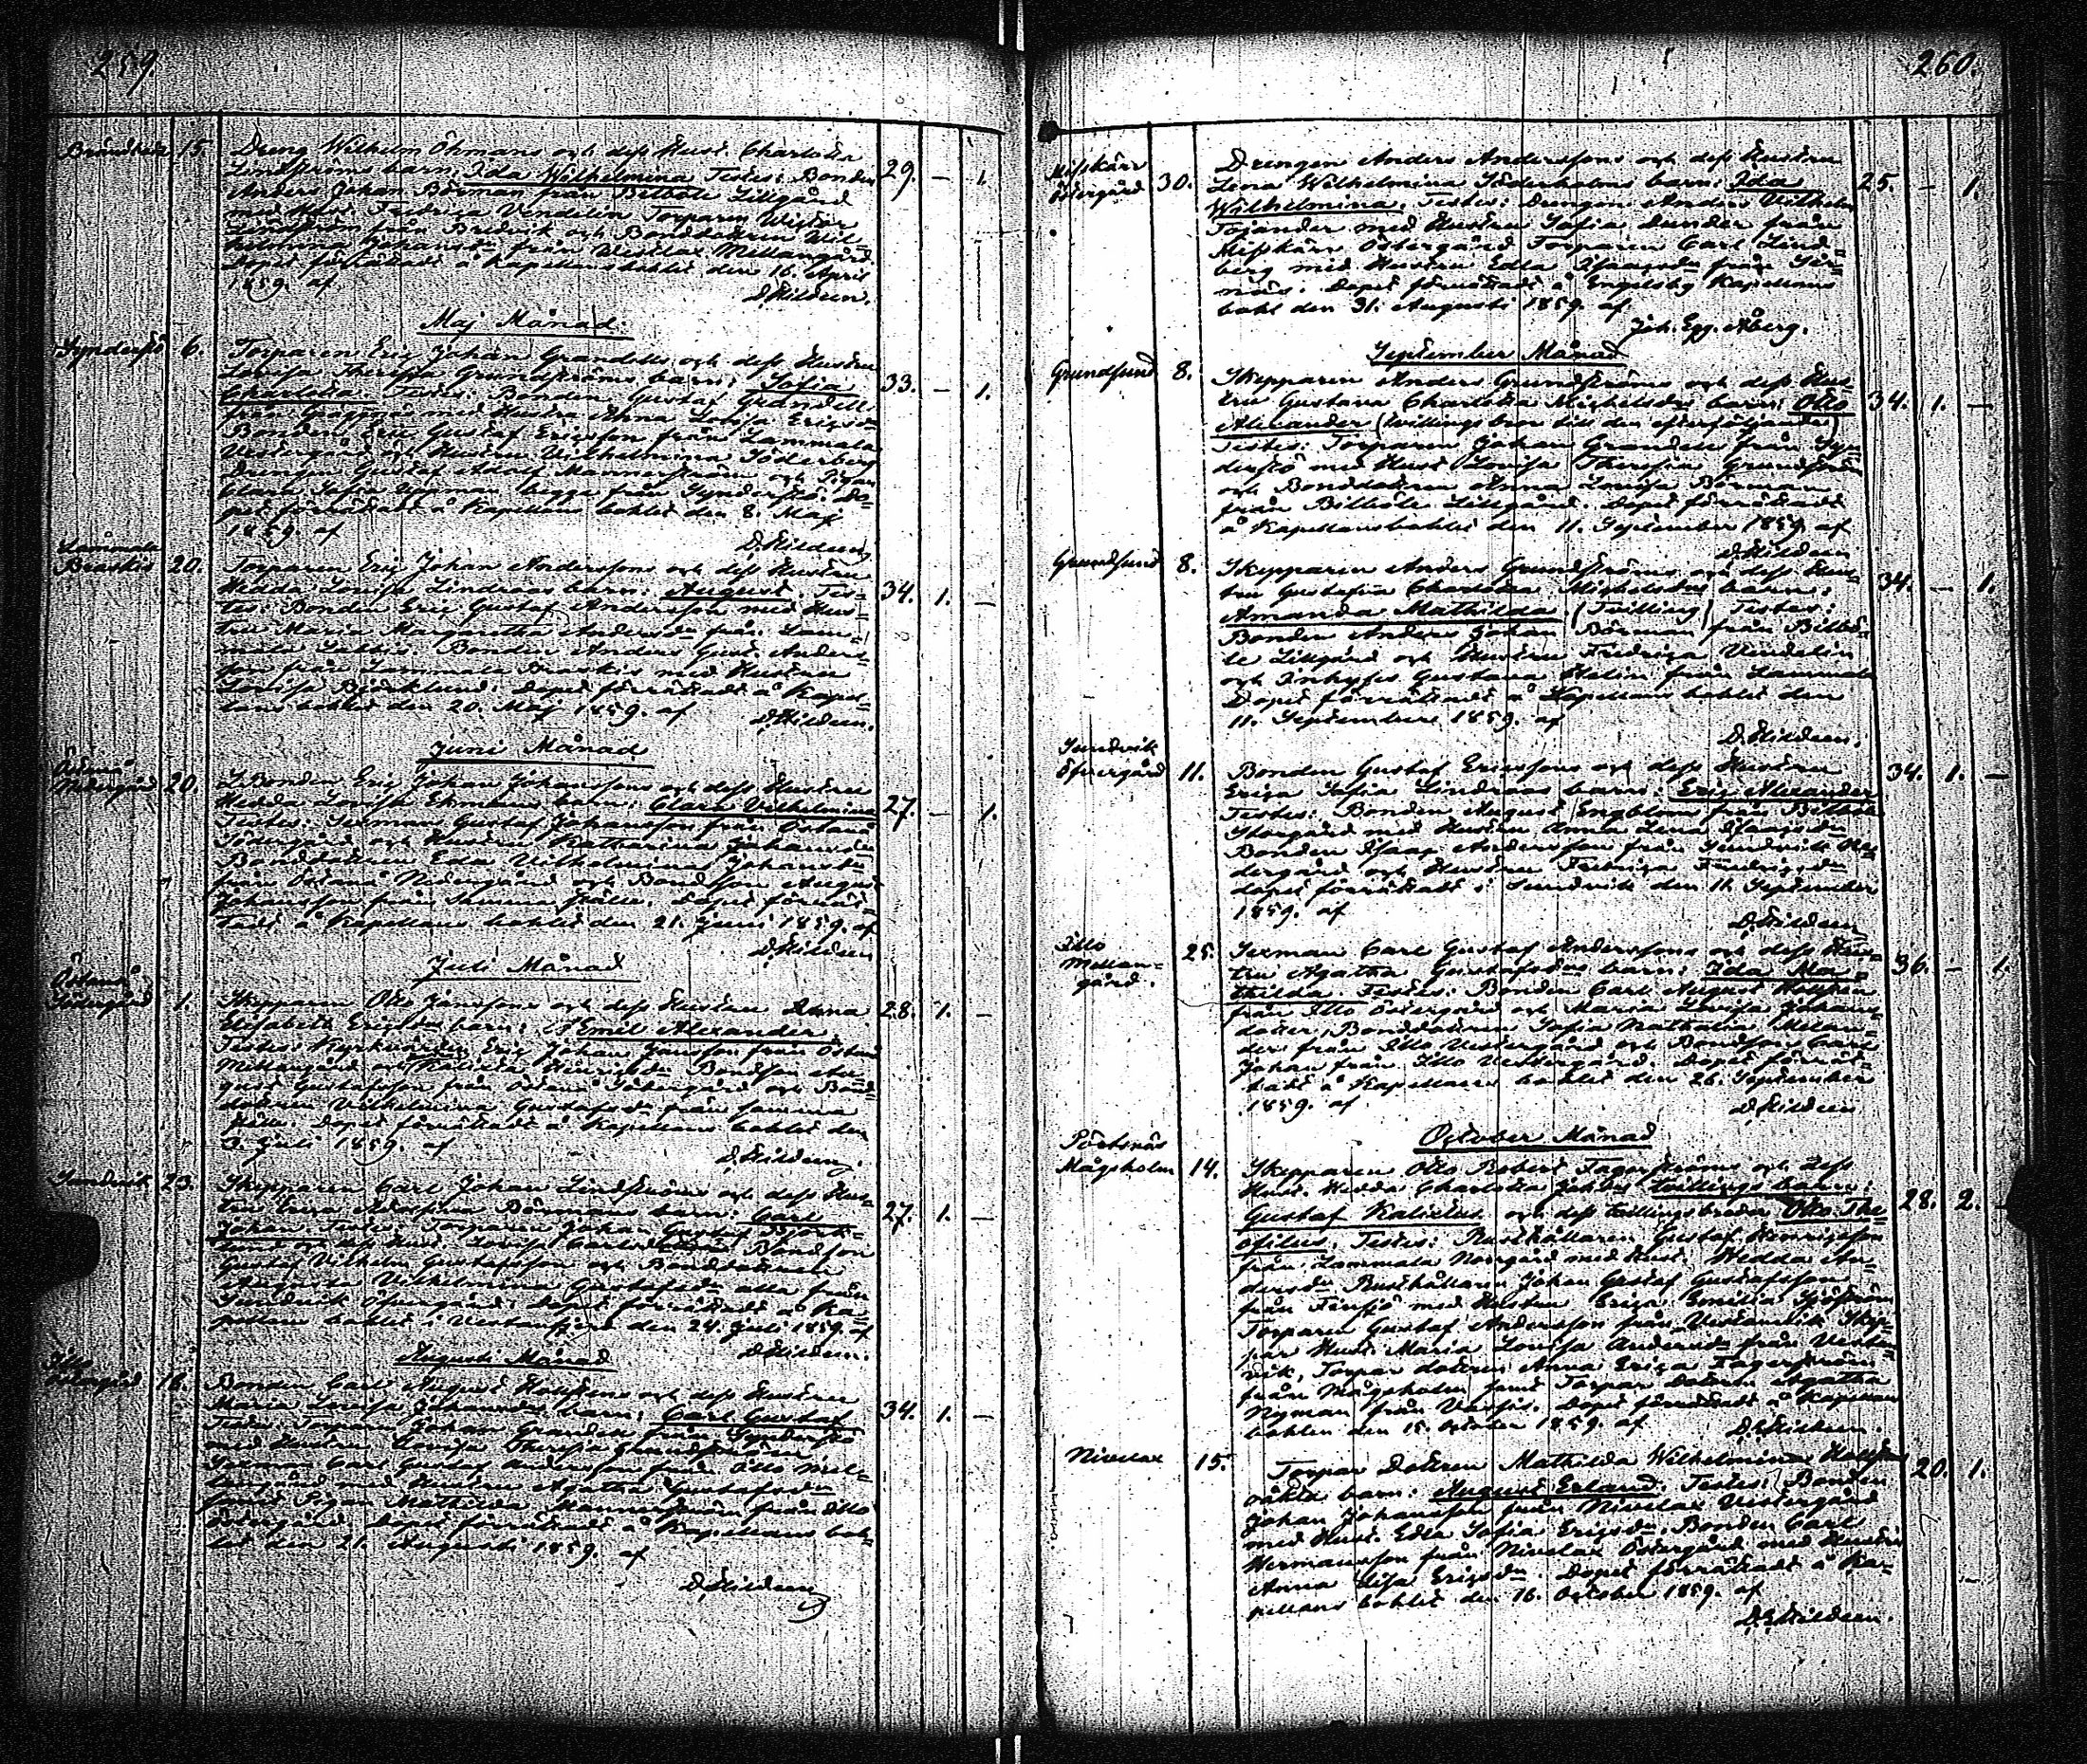 259.
Brändholm 15. Dreng Wilhelm Öhmans och dess Hust. Charlotta
Lindströms barn: Ida Wilhelmina Testes: Bonden 29. — 1.
Anders Johan Börman från Billböle Lillgård
med Hust. Fredrica Vendelin Torparen
från Bredvik och Bonddottren Wil-
helmina Johansdr från Westlax Mellangård
Dopet förrättadt å Kapellansbohlet den 16. April
1859. af
D. Hildeen.
Maj Månad.
Synderstö 6. Torparen Eric Johan Grandells och dess Hustru
Lovisa Theresia Grundströms barn: Sofia 33. — 1.
Charlotta. Testes: Bonden Gustaf Grandell
från med Hustru Anna Lovisa Ericsdr
Bonden Eric Gustaf Ericsson från Lammala
Westergård och Hustru Wilhelmina Söderberg
drengen Gustaf Adolf Mannerström och Pigan
Clara Sofia begge från Synderstö. Do-
pet förrättadt å Kapellans bohlet den 8. Maj
1859. af
D. Hildeen
Lammala
Braskis 20. Torparen Eric Johan Anderssons och dess Hustru
Hedda Lovisa Lindroos barn: August. Tes- 34. 1. —
tes: Bonden Eric Gustaf Andersson med Hus-
tru Maria Margaretha Andersdr från Lam-
mala Bonden Anders Gust. Anders-
son från Lammala Braskis med Hustru
Lovisa Björklund. Dopet förrättadt å Kapel-
lans bohlet den 20. Maj 1859. af D. Hildeen.
Juni Månad
Östanå
Nedergård 20. S. Bonden Eric Johan Johanssons och dess Hustru
Hedda Lovisa Ekmans barn: Clara Wilhelmina 27. — 1.
Testes: Sexman Gustaf Johansson från Östanå
Södergård och Hustru Katharina Johansdr
Bonddottren Eva Wilhelmina Johansdr
från Östanå Nedergård och Bondsson August
Johansson från samma ställe. Dopet förrät-
tadt å Kapellans bohlet den 21. Juni 1859. af
D. Hildeen
Juli Månad
Östanå
Södergård 1. Skepparen Otto Janssons och dess Hustru Anna 28. 1. —
Elisabeth Ericsdrs barn: Emil Alexander.
Testes: Kyrkvärden Eric Johan Jansson från Östanå
Mellangård och Henricsdr Bondson Au-
gust Gustafsson från Östanå Södergård och Bond-
dottren Wilhelmina Gustafsdr från samma
ställe. Dopet förrättadt å Kapellans bohlet den
3. Juli 1859. af
D. Hildeen.
Sundvik 23. Skepparen Carl Johan Lindströms och dess Hus-
tru Erica Adolfina Börmans barn: Carl 27. 1. —
Johan. Testes: Torparen Johan Gustaf Björk-
lund och dess Hust. Lovisa Bondson
Gustaf Wilhelm Gustafsson och Bonddottren
Augusta Wilhelmina Gustafsdr alla från
Sundvik Öfvergård. Dopet förrättadt å Ka-
pellans bohlet i Vestanfjerd den 24. Juli 1859. af
D. Hildeen.
Augusti Månad
Illo
Östergård 18. Bonden Carl August Holstens och dess Hustru
Maria Lovisa Johansdrs barn: Carl Gustaf 34. 1. —
Testes: Torparen Johan Grandell från Synderstö
med Hustru Lovisa Theresia Grundström
Sexman Carl Gustaf Andersson från Illo Mel-
langård med Hustru Agatha Gustafsdr
samt Pigan Mathilda Mannerström från Illo
Östergård. Dopet förrättadt å Kapellans boh-
let den 21. Augusti 1859. af
D. Hildeen
260.
Misskärr
Östergård 30. Drengen Anders Anderssons och dess Hustru
Lena Wilhelmina Söderholms barn: Ida 25. — 1.
Wilhelmina. Testes: Drengen Anders Vilhelm
Töjander med Hustru Sofia Sunder från
Misskärr Östergård Torparen Carl Lind-
berg med Hustru Edla Isaacsdr från Sir-
näs. Dopet förrättadt å Engelsby Kapellans
bohl den 31. Augusti 1859. af
Joh. Egg. Åberg.
September Månad
Grundsund 8. Skepparen Anders Grundströms och dess Hus-
tru Gustava Charlotta Michelsdrs barn: Otto 34. 1. —
Alexander (tvillings bror till den efterföljande)
Testes: Torparen Johan Grandell från Syn-
derstö med Hust. Lovisa Theresia Grundström
och Bonddottren Anna Lovisa Börman
från Billböle Lillgård. Dopet förrättadt
å Kapellansbohlet den 11. September 1859. af
D. Hildeen
Grundsund 8. Skepparen Anders Grundströms och dess Hus-
tru Gustafva Charlotta Michelsdrs barn: 34. — 1.
Amanda Mathilda. (Tvilling) Testes:
Bonden Anders Johan Börman från Billbö-
le Lillgård och Hustru Fredrica Vendelin
och Inhyses Gustava Helin från Lammala
Dopet förrättadt å Kapellans bohlet den
11. September 1859. af
D. Hildeen.
Sundvik
Öfvergård 11. Bonden Gustaf Ericssons och dess Hustru 34. 1. —
Erica Sofia Lindroos barn: Eric Alexander
Testes: Bonden August Engblom från Billböle
Storgård med Hustru Anna Lena Isaacsdr
Bonden Isaac Andersson från Sundvik Ne-
dergård och Hustru Fredrica Fredricsdr
dopet förrättadt i Sundvik den 11. September
1859. af
D. Hildeen
Illo
Mellan-
gård. 25. Sexman Carl Gustaf Anderssons och dess Hus-
tru Agatha Gustafsdrs barn: Ida Ma- 36. — 1.
thilda. Testes: Bonden Carl August Holsten
från Illo Östergård och Maria Lovisa Johans-
dotter, Bonddottren Sofia Nathalia Melan-
der från Illo Westergård och Bondson Carl
Johan från Illo Westergård. Dopet förrät-
tadt å Kapellans bohlet den 26. September
1859. af
D. Hildeen
October Månad
Pörtsnäs
Mågsholm 14. Skepparen Otto Robert Fagerströms och dess
Hust. Hedda Charlotta Jakbes tvillings barn: 28. 2. —
Gustaf Kalixtus och dess tvillingsbroder Otto The-
ofilus. Testes: Rusthållaren Gustaf Henricsson
från Lammala Norrgård med Hust. Hedda An-
dersdr Rusthållaren Johan Gustaf Gustafsson
från Finsjö med Hustru Erica Emilia Sjöström
Torparen Gustaf Andersson från Westanvik Skep-
par Hust. Maria Lovisa Andersdr från
vik, Torpar dottren Anna Erica Fagerström
från Mågsholm samt Torpar dottren Agatha
Nyman från Dopet förrättadt å Kapellans
bohlet den 15. October 1859. af D. Hildeen.
Nivelax 15. Torpar Dottren Mathilda Wilhelmina 20. 1.
oäkta barn: August Erland. Testes: Bonden
Johan Johansson från Nivelax Westergård
med Hust. Edla Sofia Ericsdr. Bonden Carl
Hermansson från Nivelax Östergård med Hustru
Anna Lisa Ericsdr. Dopet förrättadt å Ka-
pellans bohlet den 16. October 1859. af
D. Hildeen.